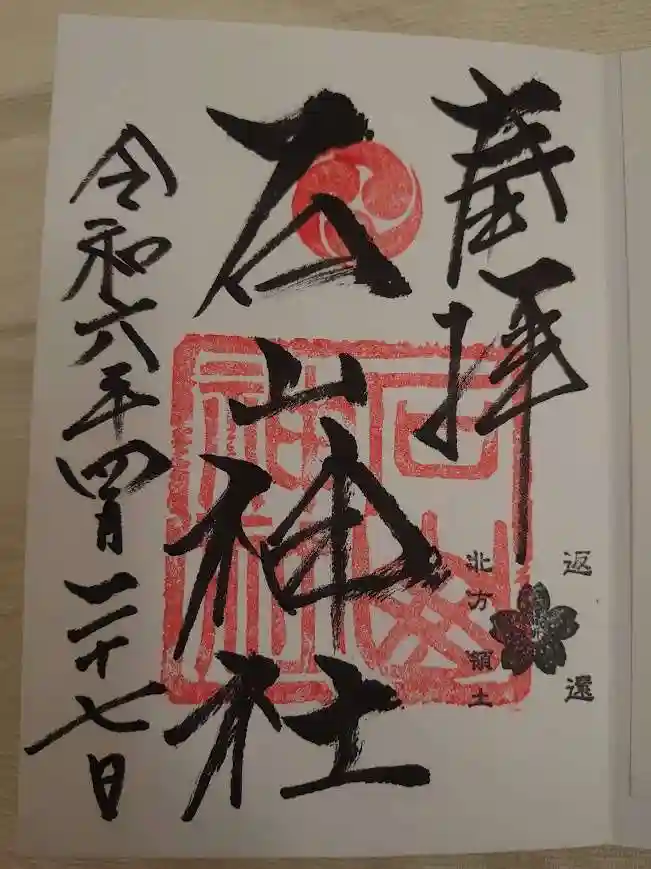 奉拝
石山神社
令和六年四月二十七日
石山
神社
返還
北方領土